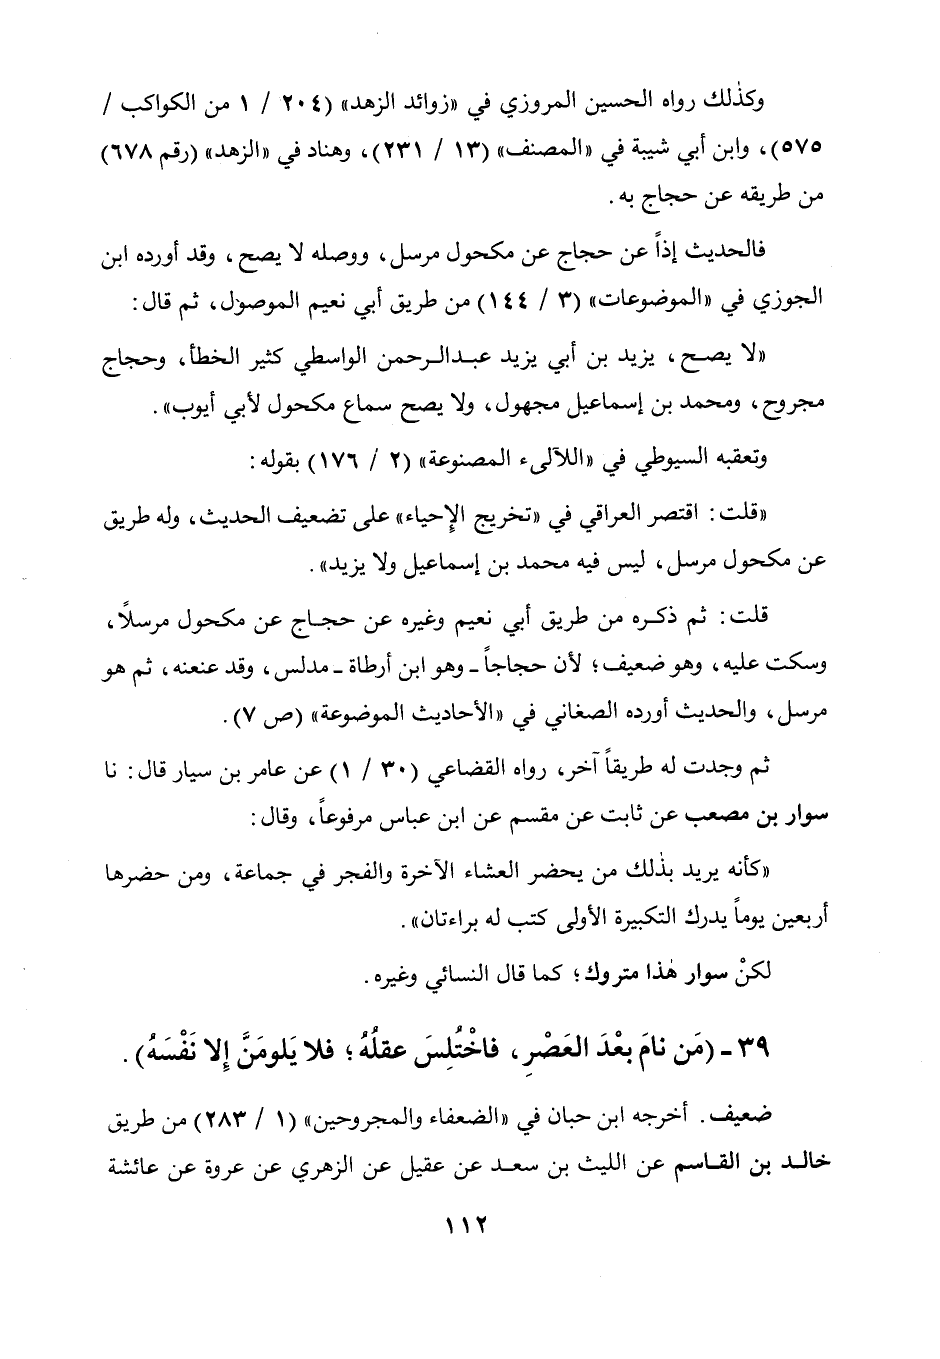 وكذلك رواه الحسين المروزي في «زوائد الزهد» (٢٠٤ / ١ من الكواكب /
٥٧٥)، وابن أبي شيبة في «المصنف» (١٣ / ٢٣١)، وهناد في «الزهد» (رقم ٦٧٨)
من طريقه عن حجاج به .
فالحديث إذاً عن حجاج عن مكحول مرسل، ووصله لا يصح، وقد أورده ابن
الجوزي في «الموضوعات» (٣ / ١٤٤) من طريق أبي نعيم الموصول، ثم قال:
«لا يصح، يزيد بن أبي يزيد عبدالرحمن الواسطي كثير الخطأ، وحجاج
مجروح، ومحمد بن إسماعيل مجهول، ولا يصح سماع مكحول لأبي أيوب».
وتعقبه السيوطي في «اللآلىء المصنوعة» (٢ / ١٧٦) بقوله:
«قلت: اقتصر العراقي في «تخريج الإحياء» على تضعيف الحديث، وله طريق
عن مكحول مرسل، ليس فيه محمد بن إسماعيل ولا يزيد».
قلت: ثم ذكره من طريق أبي نعيم وغيره عن حجاج عن مكحول مرسلاً،
وسكت عليه، وهو ضعيف؛ لأن حجاجاً ـ وهو ابن أرطاة ـ مدلس، وقد عنعنه، ثم هو
مرسل، والحديث أورده الصغاني في «الأحاديث الموضوعة» (ص ٧).
ثم وجدت له طريقاً آخر، رواه القضاعي (٣٠ / ١) عن عامر بن سيار قال: نا
سوار بن مصعب عن ثابت عن مقسم عن ابن عباس مرفوعاً، وقال:
«كأنه يريد بذلك من يحضر العشاء الآخرة والفجر في جماعة، ومن حضرها
أربعين يوماً يدرك التكبيرة الأولى كتب له براءتان».
لكنْ سوار هٰذا متروك؛ كما قال النسائي وغيره.
٣٩ ـ (مَن نامَ بعْدَ العَصْرِ، فاخْتُلِسَ عقلُهُ؛ فلا يَلومَنَّ إلا نَفْسَهُ).
ضعيف. أخرجه ابن حبان في «الضعفاء والمجروحين» (١ / ٢٨٣) من طريق
خالد بن القاسم عن الليث بن سعد عن عقيل عن الزهري عن عروة عن عائشة
١١٢